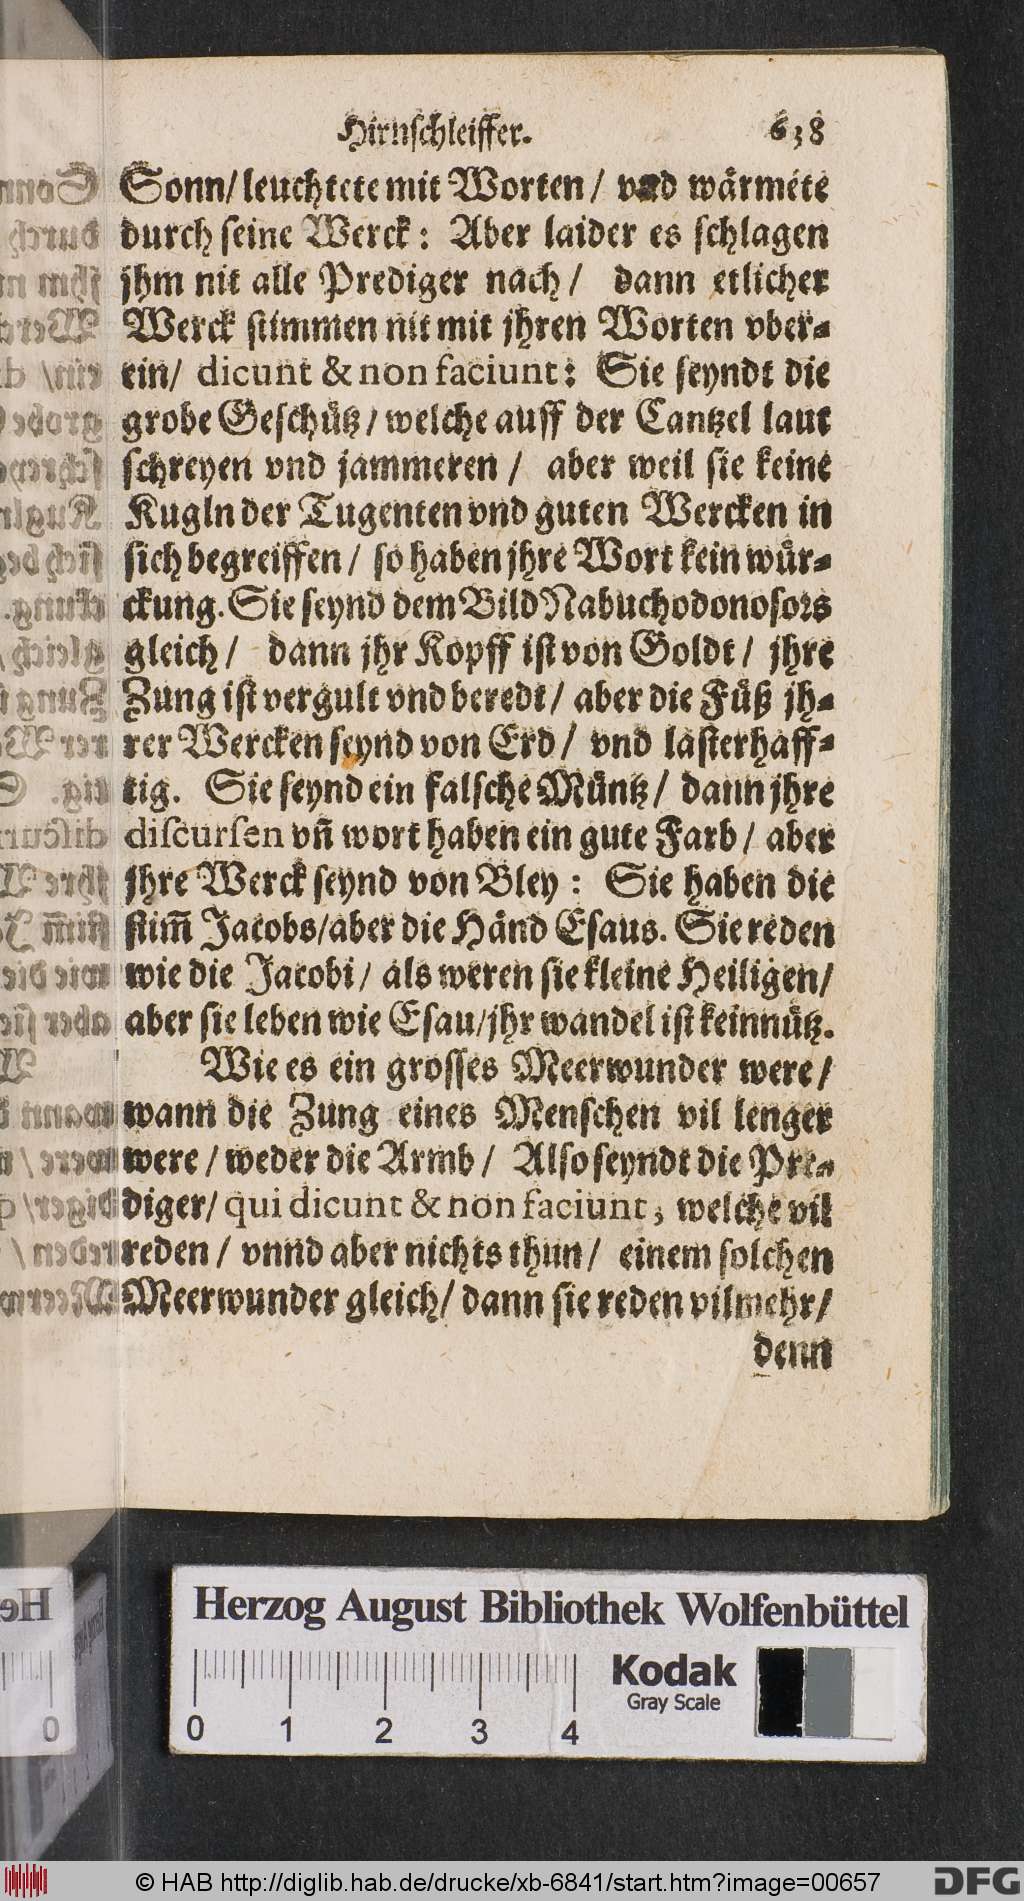 Hirnschleiffer. 638
Sonn/ leuchtete mit Worten / vnd wärmete
durch seine Werck : Aber laider es schlagen
jhm nit alle Prediger nach / dann etlicher
Werck stimmen nit mit jhren Worten vber-
ein/ dicunt & non faciunt: Sie seyndt die
grobe Geschütz / welche auff der Cantzel laut
schreyen vnd jammeren / aber weil sie keine
Kugln der Tugenten vnd guten Wercken in
sich begreiffen / so haben jhre Wort kein wür-
ckung. Sie seynd dem Bild Nabuchodonosors
gleich / dann jhr Kopff ist von Goldt / jhre
Zung ist vergult vnd beredt / aber die Füß jh-
rer Wercken seynd von Erd / vnd lasterhaff-
tig. Sie seynd ein falsche Müntz / dann jhre
discursen vn̄ wort haben ein gute Farb / aber
jhre Werck seynd von Bley : Sie haben die
stim̄ Jacobs/aber die Händ Esaus. Sie reden
wie die Jacobi / als weren sie kleine Heiligen/
aber sie leben wie Esau/jhr wandel ist keinnütz.
Wie es ein grosses Meerwunder were /
wann die Zung eines Menschen vil lenger
were / weder die Armb / Also seyndt die Pre-
diger/ qui dicunt & non faciunt, welche vil
reden / vnnd aber nichts thun / einem solchen
Meerwunder gleich/ dann sie reden vilmehr/
denn
Herzog August Bibliothek Wolfenbüttel
Kodak
Gray Scale
0 1 2 3 4
© HAB http://diglib.hab.de/drucke/xb-6841/start.htm?image=00657
DFG